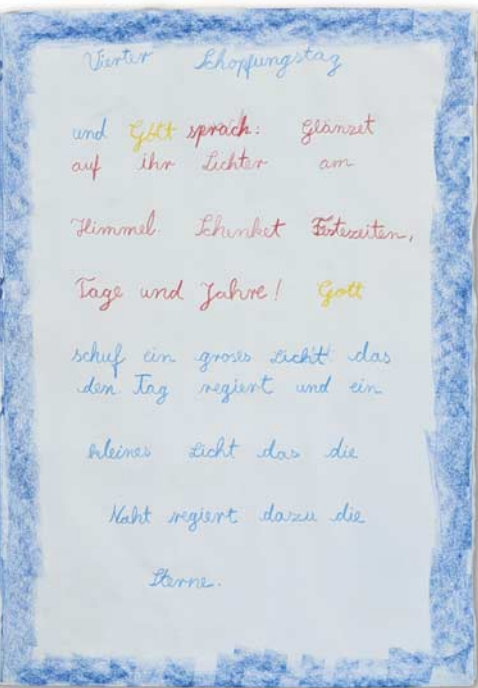 Vierter Schopfungstag
und Gott sprach: Glänzet
auf ihr Lichter am
Himmel. Schenket Festezeiten,
Tage und Jahre! Gott
schuf ein groses Licht das
den Tag regiert und ein
kleines Licht das die
Naht regiert dazu die
Sterne.